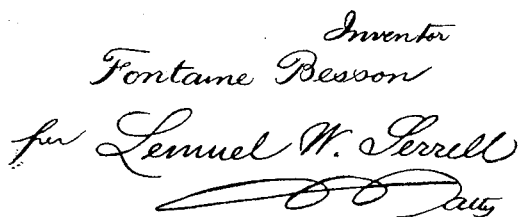 Inventor
Fontaine Besson
per Lemuel W. Serrell
atty